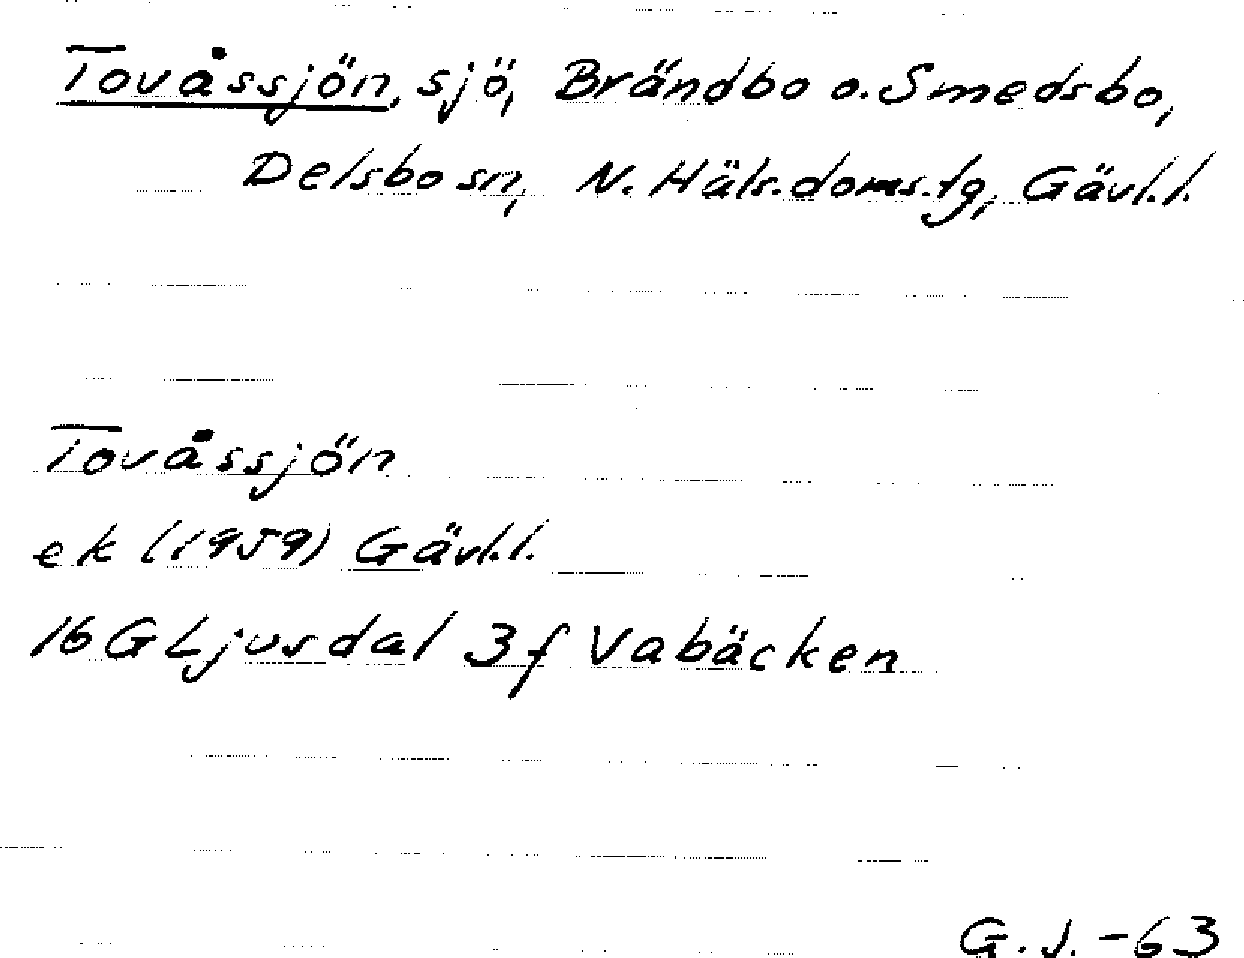 Tovåssjön, sjö, Brändbo o. Smedsbo,
Delsbo sn, N. Häls. doms. tg, Gävl. l.
Tovåssjön
ek (1959) Gävl. l.
16 G Ljusdal 3 f Vabäcken
G. J. -63